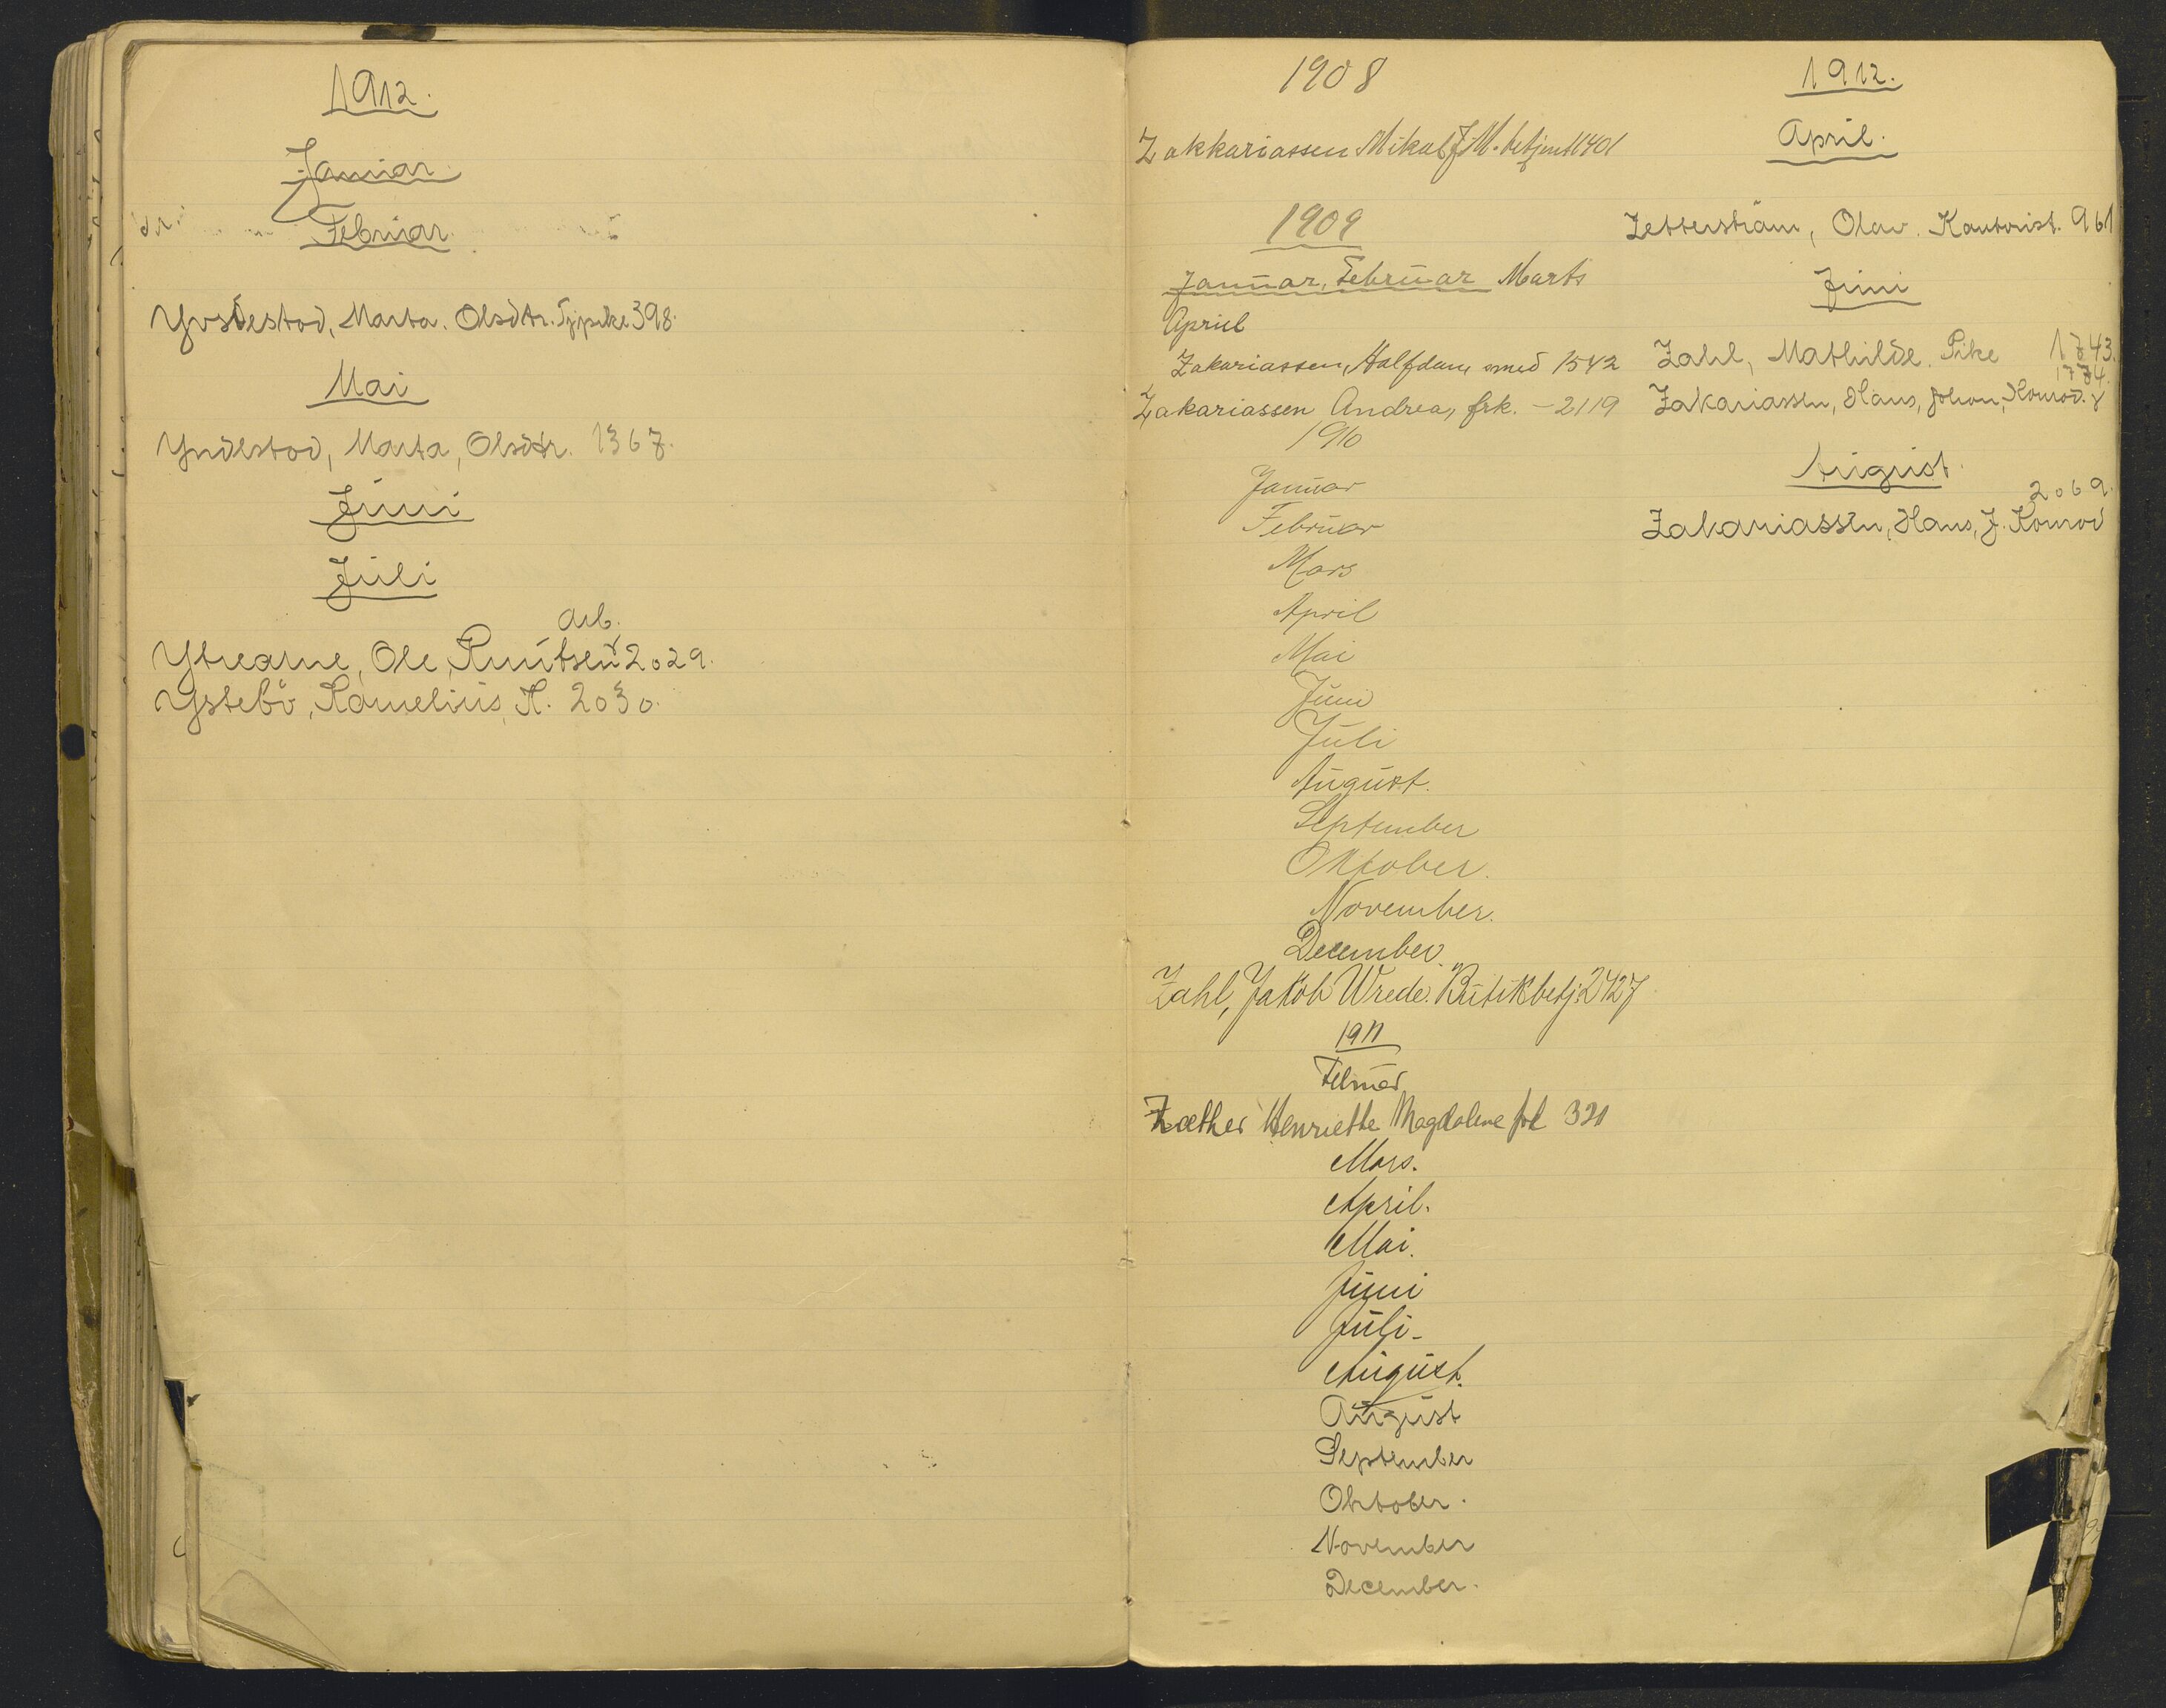 1912.
Januar
Februar
Yvsdestad, Marta. Olsdtr. Tjpike 398.
Mai
Yndestad, Marta, Olsdtr. 1367.
Juni
Juli
arb.
Ytrearne, Ole, Knutsen 2029.
Ystebö, Kornelius, K. 2030.
1908
Zakkariassen Mikal J. M. betjent 1401
1909
Januar, Februar Marts
Apriel
Zakariassen, Halfdan, smed 1542
Zakariassen Andrea, frk. - 2119
1910
Januar
Februar
Mars
April
Mai
Juni
Juli
August.
September
Oktober.
November.
December.
Zahl, Jakob Wrede. Butikbetj. 2427
1911
Februar
Zæther Henriette Magdalene frk 321
Mars.
April.
Mai.
Juni
Juli-
August.
August
September
Oktober.
November
December.
1912.
April.
Zetterström, Olav. Kontorist. 961
Juni
Zahl, Mathilde. Pike 1743.
1774.
Zakariassen, Hans, Johan, Konrad.
August.
2069.
Zakariassen, Hans, J. Konrad